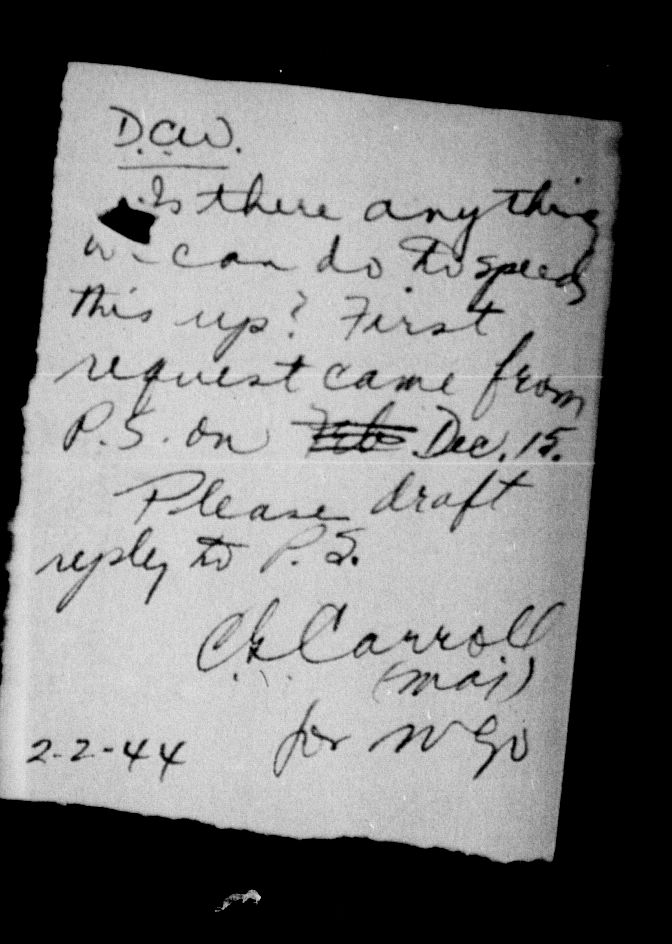 D.C.W.
Is there anything
we can do to speed
this up? First
request came from
P.S. on ~~Feb~~ Dec. 15.
Please draft
reply to P.S.
Carroll
(maj)
for
2-2-44